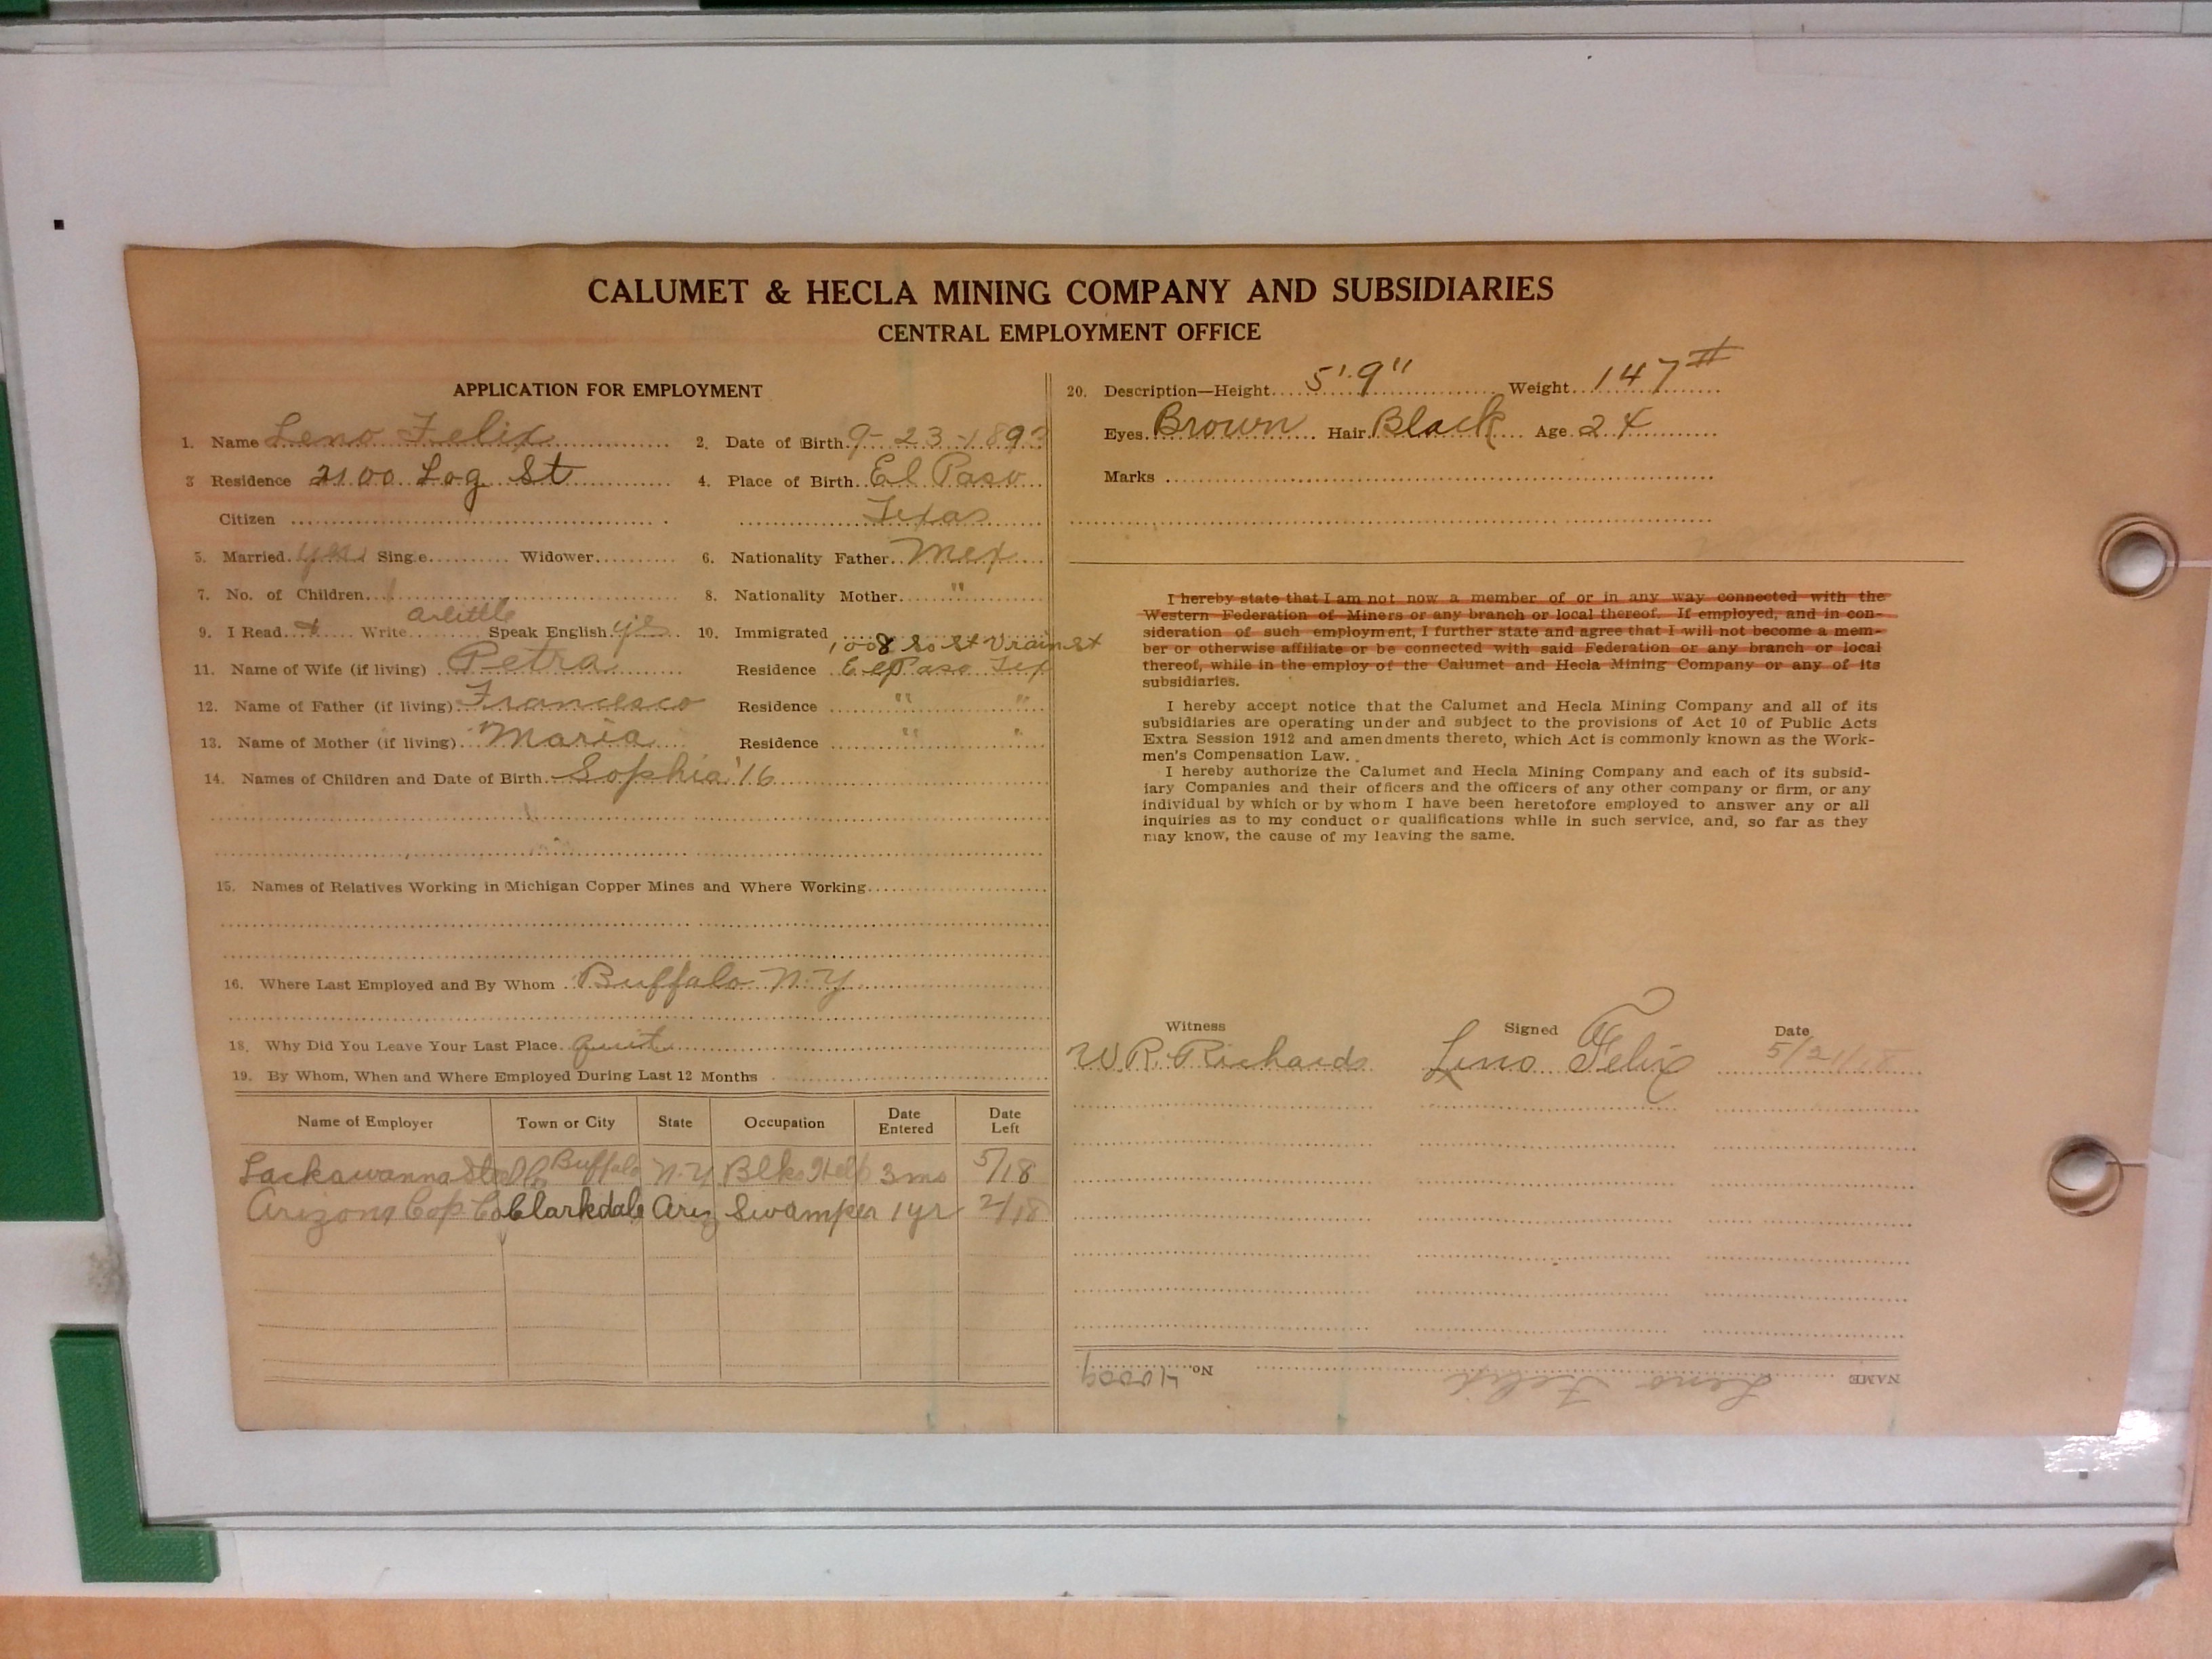 CALUMET & HECLA MINING COMPANY AND SUBSIDIARIES
CENTRAL EMPLOYMENT OFFICE
APPLICATION FOR EMPLOYMENT
1. Name Leno Felix 2. Date of Birth 9-23-1893
3 Residence 2100 Log St 4. Place of Birth El Paso
Citizen Texas
5. Married yes Single Widower 6. Nationality Father Mex
7. No. of Children 1 8. Nationality Mother "
9. I Read + Write a little Speak English yes 10. Immigrated
1008 So St Vrain St
11. Name of Wife (if living) Petra Residence El Paso Tex
12. Name of Father (if living) Francesco Residence " "
13. Name of Mother (if living) Maria Residence " "
14. Names of Children and Date of Birth Sophia '16
15. Names of Relatives Working in Michigan Copper Mines and Where Working
16. Where Last Employed and By Whom Buffalo N.Y
18. Why Did You Leave Your Last Place quit
19. By Whom, When and Where Employed During Last 12 Months
Name of Employer Town or City State Occupation Date Entered Date Left
Lackawanna Steel Buffalo N.Y Blks Help 3 mo 5/18
Arizona Cop Co Clarkdale Ariz Swamper 1 yr 2/18
20. Description—Height 5'.9" Weight 147#
Eyes Brown Hair Black Age 24
Marks
I hereby state that I am not now a member of or in any way connected with the
Western Federation of Miners or any branch or local thereof. If employed, and in con-
sideration of such employment, I further state and agree that I will not become a mem-
ber or otherwise affiliate or be connected with said Federation or any branch or local
thereof, while in the employ of the Calumet and Hecla Mining Company or any of its
subsidiaries.
I hereby accept notice that the Calumet and Hecla Mining Company and all of its
subsidiaries are operating under and subject to the provisions of Act 10 of Public Acts
Extra Session 1912 and amendments thereto, which Act is commonly known as the Work-
men's Compensation Law.
I hereby authorize the Calumet and Hecla Mining Company and each of its subsid-
iary Companies and their officers and the officers of any other company or firm, or any
individual by which or by whom I have been heretofore employed to answer any or all
inquiries as to my conduct or qualifications while in such service, and, so far as they
may know, the cause of my leaving the same.
Witness Signed Date
W.R. Richards Leno Felix 5/21/18
NAME Leno Felix No. 41009